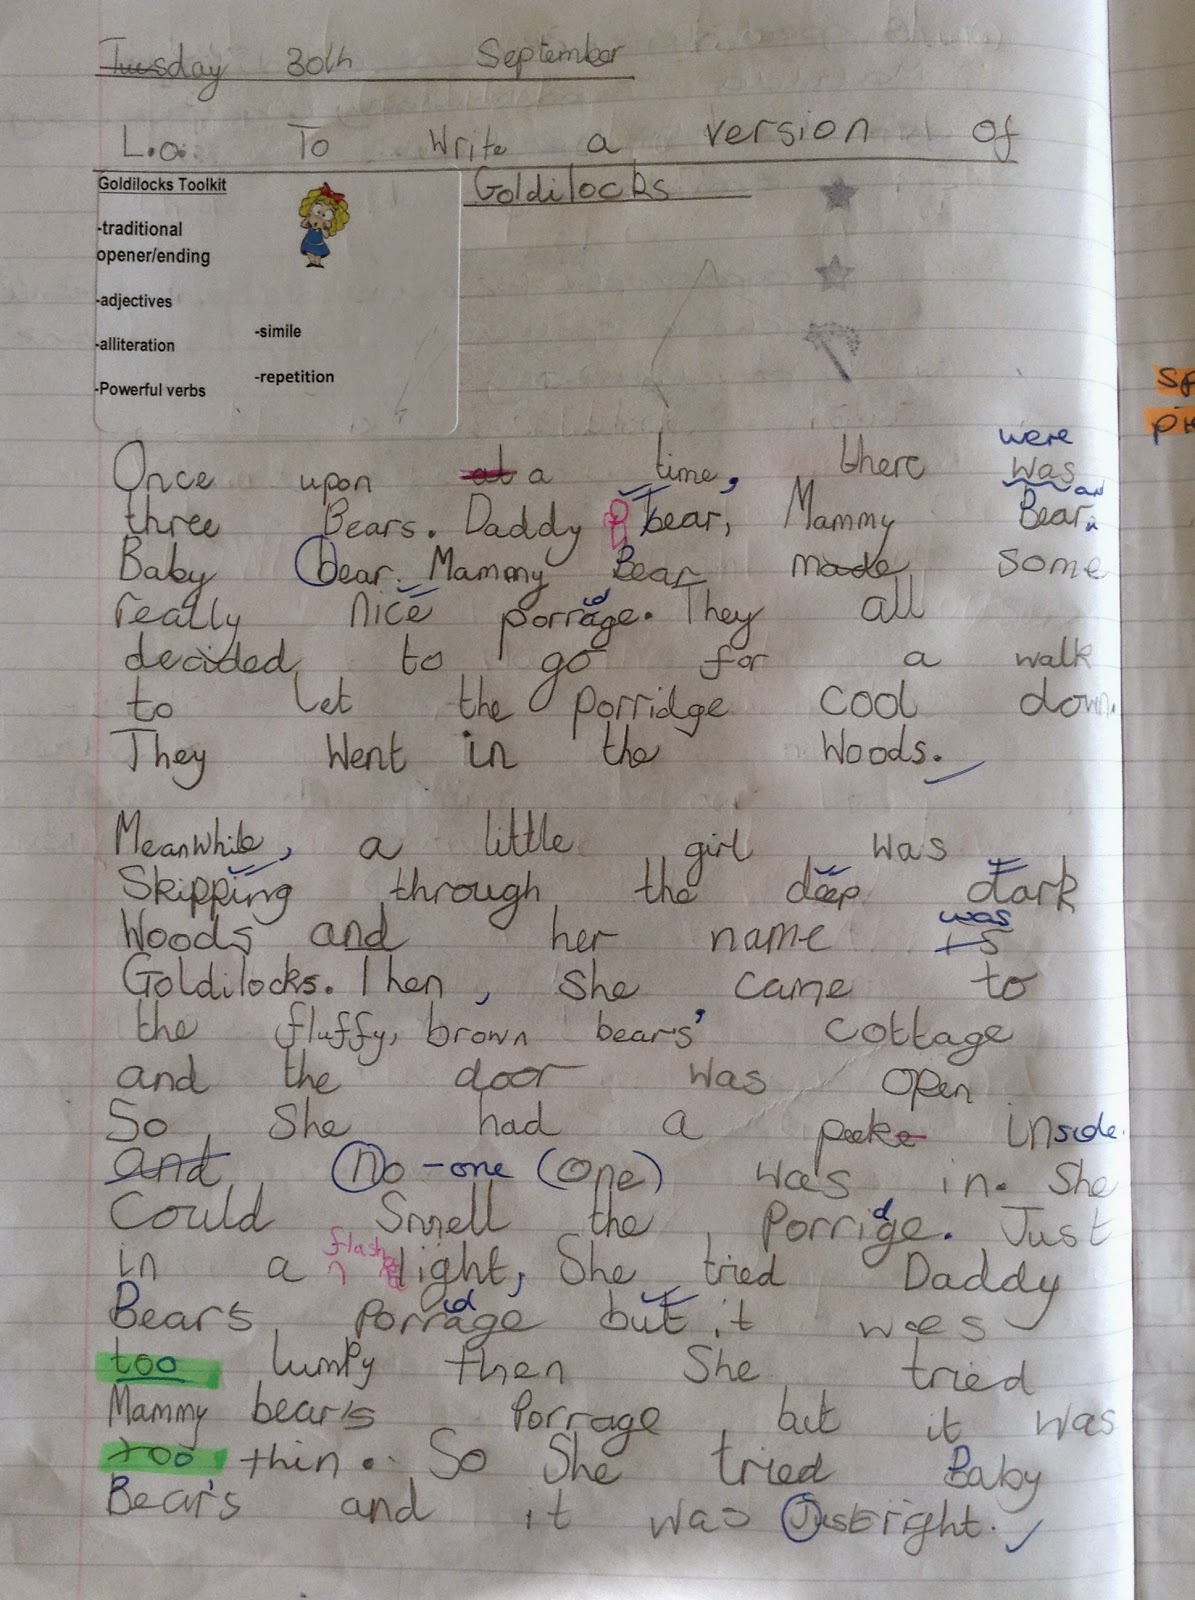 Tuesday 30th September
L.o. To write a version of
Goldilocks
Goldilocks Toolkit
-traditional
opener/ending
-adjectives
-simile
-alliteration
-repetition
-Powerful verbs
were
Once upon at a time, there was
and
three Bears. Daddy bear, Mammy Bear
Baby bear. Mammy Bear made some
d
really nice porrage. They all
decided to go for a walk
to let the porridge cool down.
They went in the woods.
Meanwhile, a little girl was
Skipping through the deep dark
was
Woods and her name is
Goldilocks. Then, she came to
the fluffy, brown bears' cottage
and the door was open
So she had a peeke inside.
and no-one (one) was in. She
d
Could Smell the Porrige. Just
flash
in a light, She tried Daddy
id
Bear's porrage but it was
too lumpy then She tried
Mammy bear's Porrage but it was
too thin. So She tried Baby
Bear's and it was Just right.